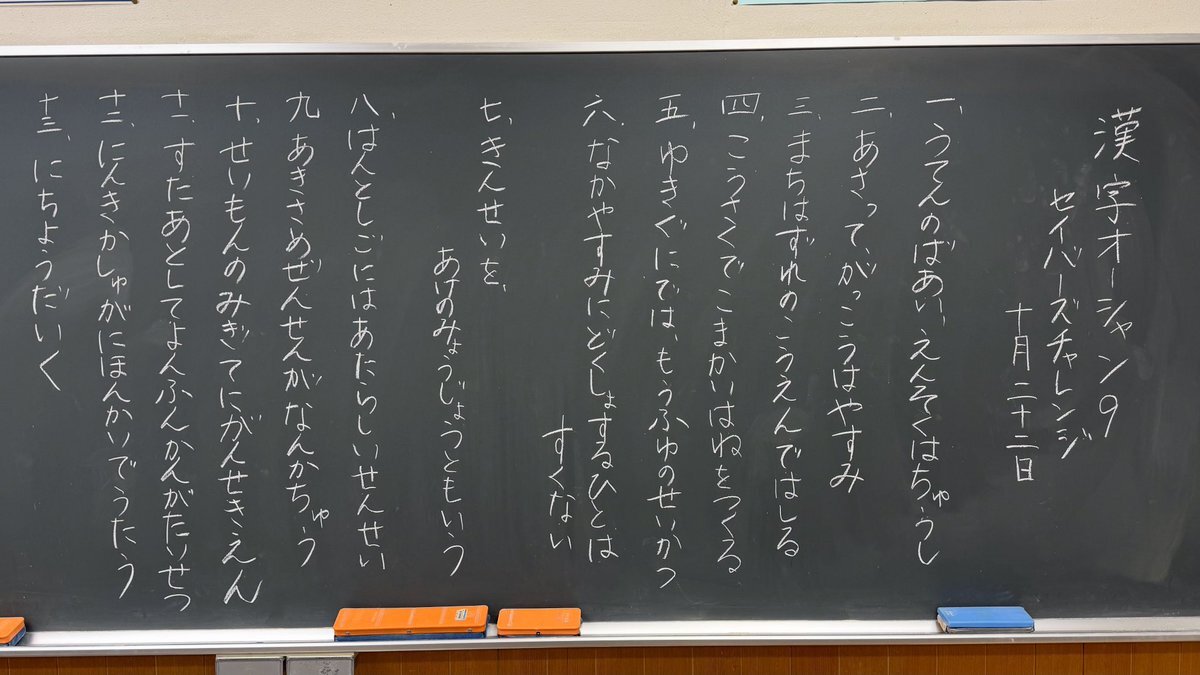 漢字オーシャン9
セイバーズチャレンジ
十月二十二日
一、うてんのばあい、えんそくはちゅうし
二、あさってがっこうはやすみ
三、まちはずれのこうえんではしる
四、こうさくでこまかいはねをつくる
五、ゆきぐにでは、もうふゆのせいかつ
六、なかやすみにどくしょするひとは
すくない
七、きんせいを、
あけのみょうじょうともいう
八、はんとしごにはあたらしいせんせい
九、あきさめぜんせんがなんかちゅう
十、せいもんのみぎてにがんせきえん
十一、すたあとしてよんふんかんがたいせつ
十二、にんきかしゅがにほんかいでうたう
十三、にちようだいく